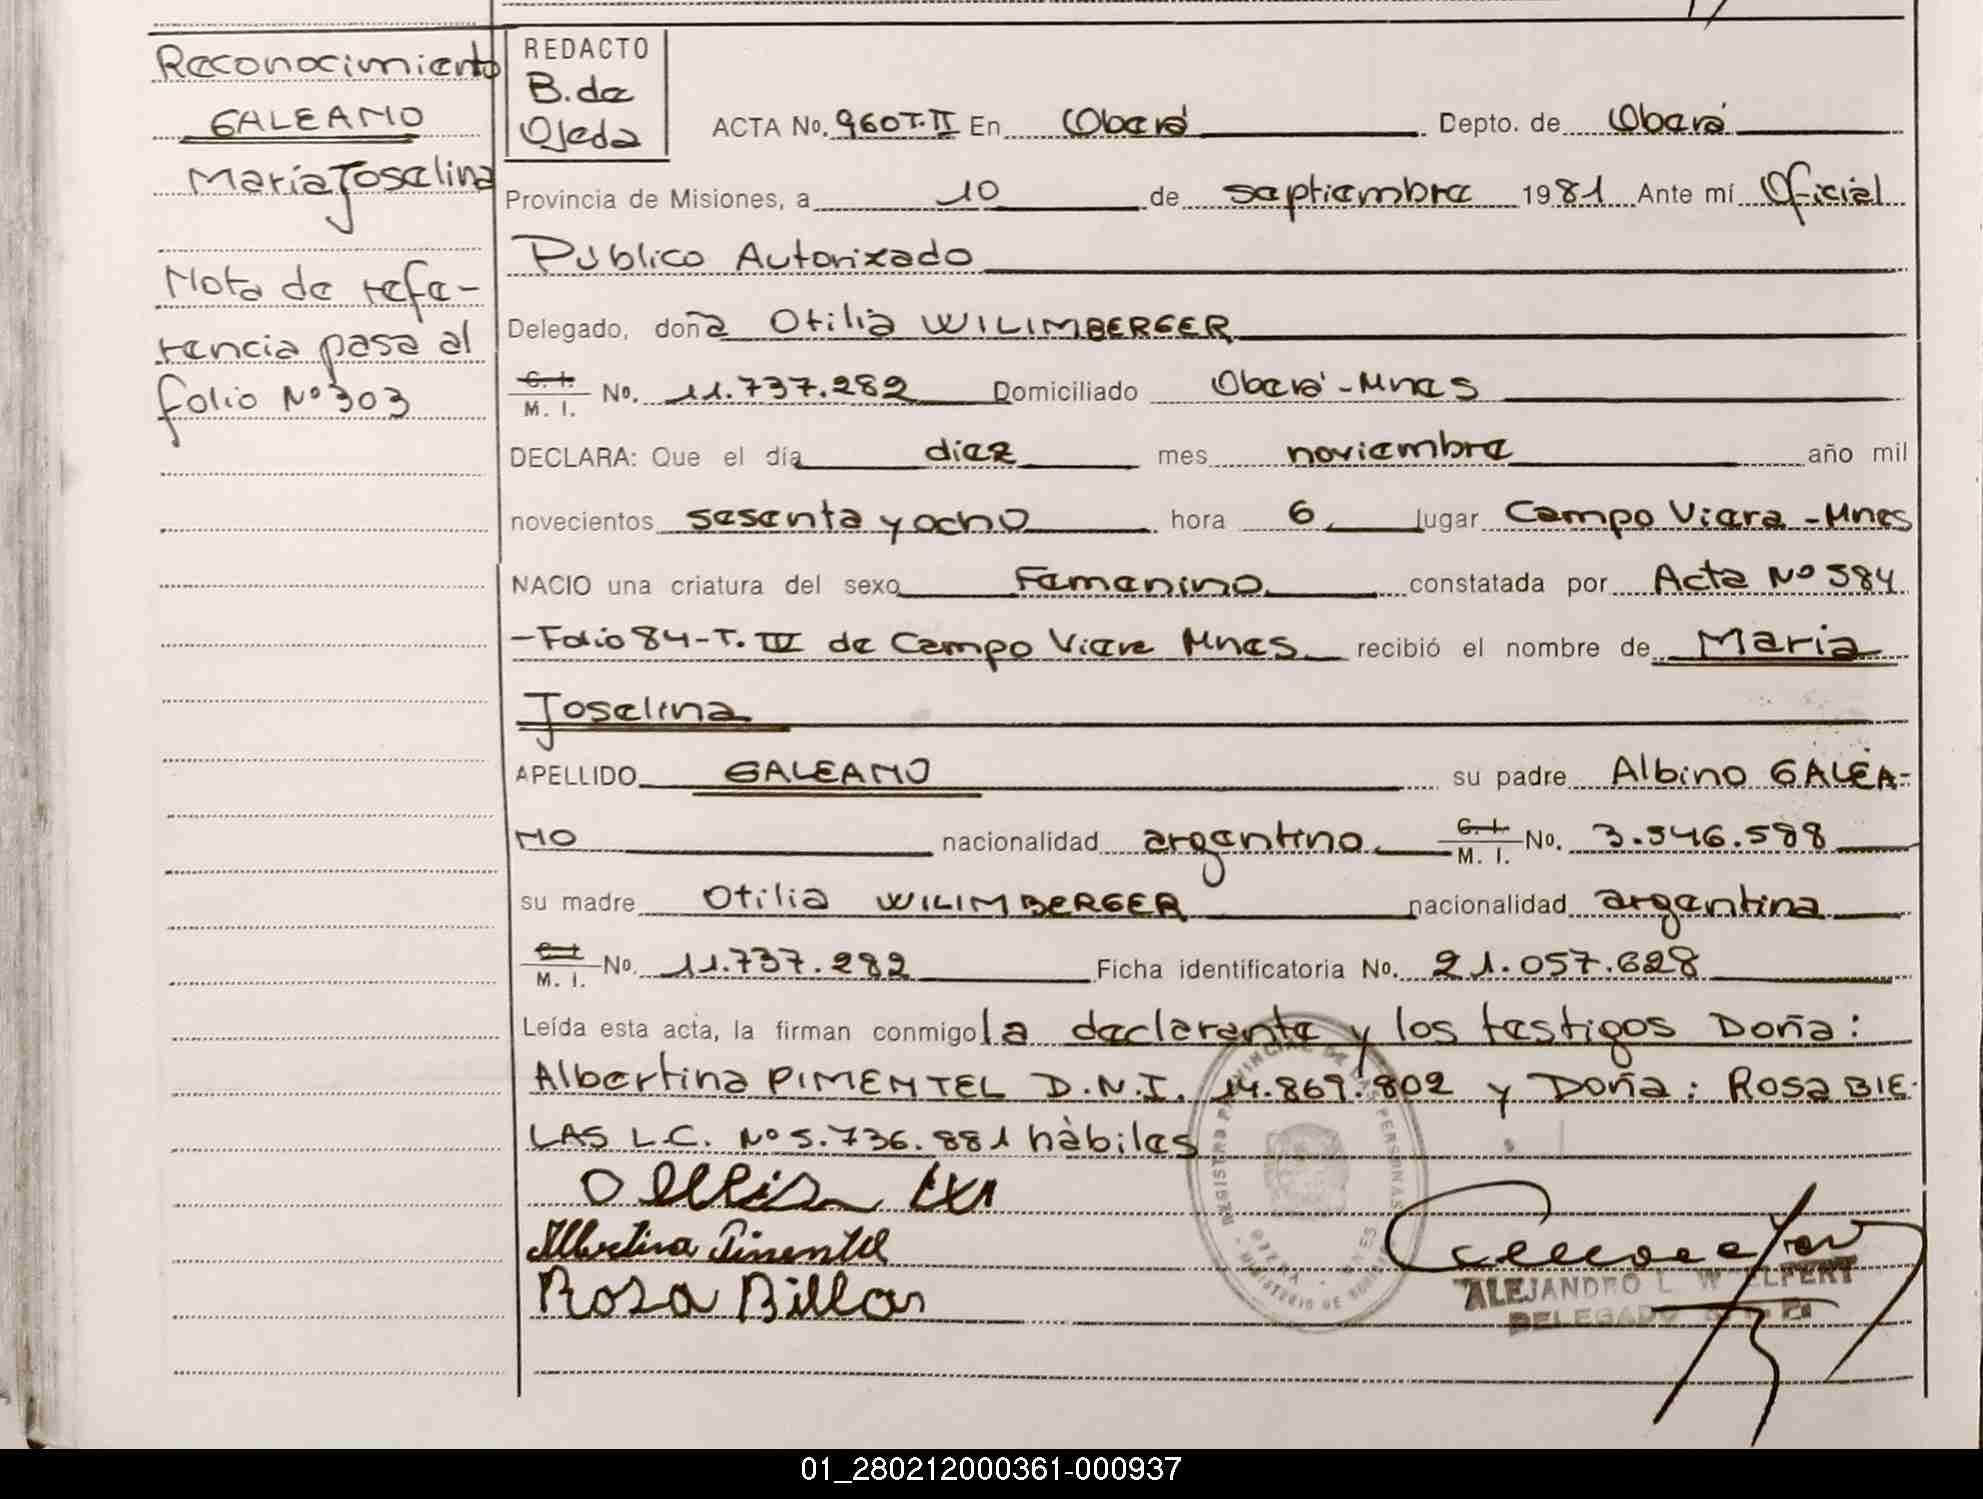 Reconocimiento
GALEANO
María Joselina
Nota de refe-
rencia pasa al
folio Nº 303
REDACTO
B. de
Ojeda
ACTA No. 960 T. II En Oberá Depto. de Oberá
Provincia de Misiones, a 10 de septiembre 1981 Ante mí Oficial
Público Autorizado
Delegado, doña Otilia WILIMBERGER
C. I. M. I. No. 11.737.282 Domiciliado Oberá-Mnes
DECLARA: Que el día diez mes noviembre año mil
novecientos sesenta y ocho hora 6 lugar Campo Viera-Mnes
NACIO una criatura del sexo Femenino constatada por Acta Nº 584
-Folio 84-T. III de Campo Viera Mnes recibió el nombre de María
Joselina
APELLIDO GALEANO su padre Albino GALEA-
NO nacionalidad argentino C. I. M. I. No. 3.546.588
su madre Otilia WILIMBERGER nacionalidad argentina
C. I. M. I. No. 11.737.282 Ficha identificatoria No. 21.057.628
Leída esta acta, la firman conmigo la declarante y los testigos Doña:
Albertina PIMENTEL D.N.I. 14.869.802 y Doña: Rosa BIE-
LAS L.C. Nº 5.736.881 hábiles
Albertina Pimentel
Rosa Billar
REGISTRO PROVINCIAL DE LAS PERSONAS
OBERA - MNES
MINISTERIO DE GOBIERNO
ALEJANDRO L. WELFERT
DELEGADO
01_280212000361-000937